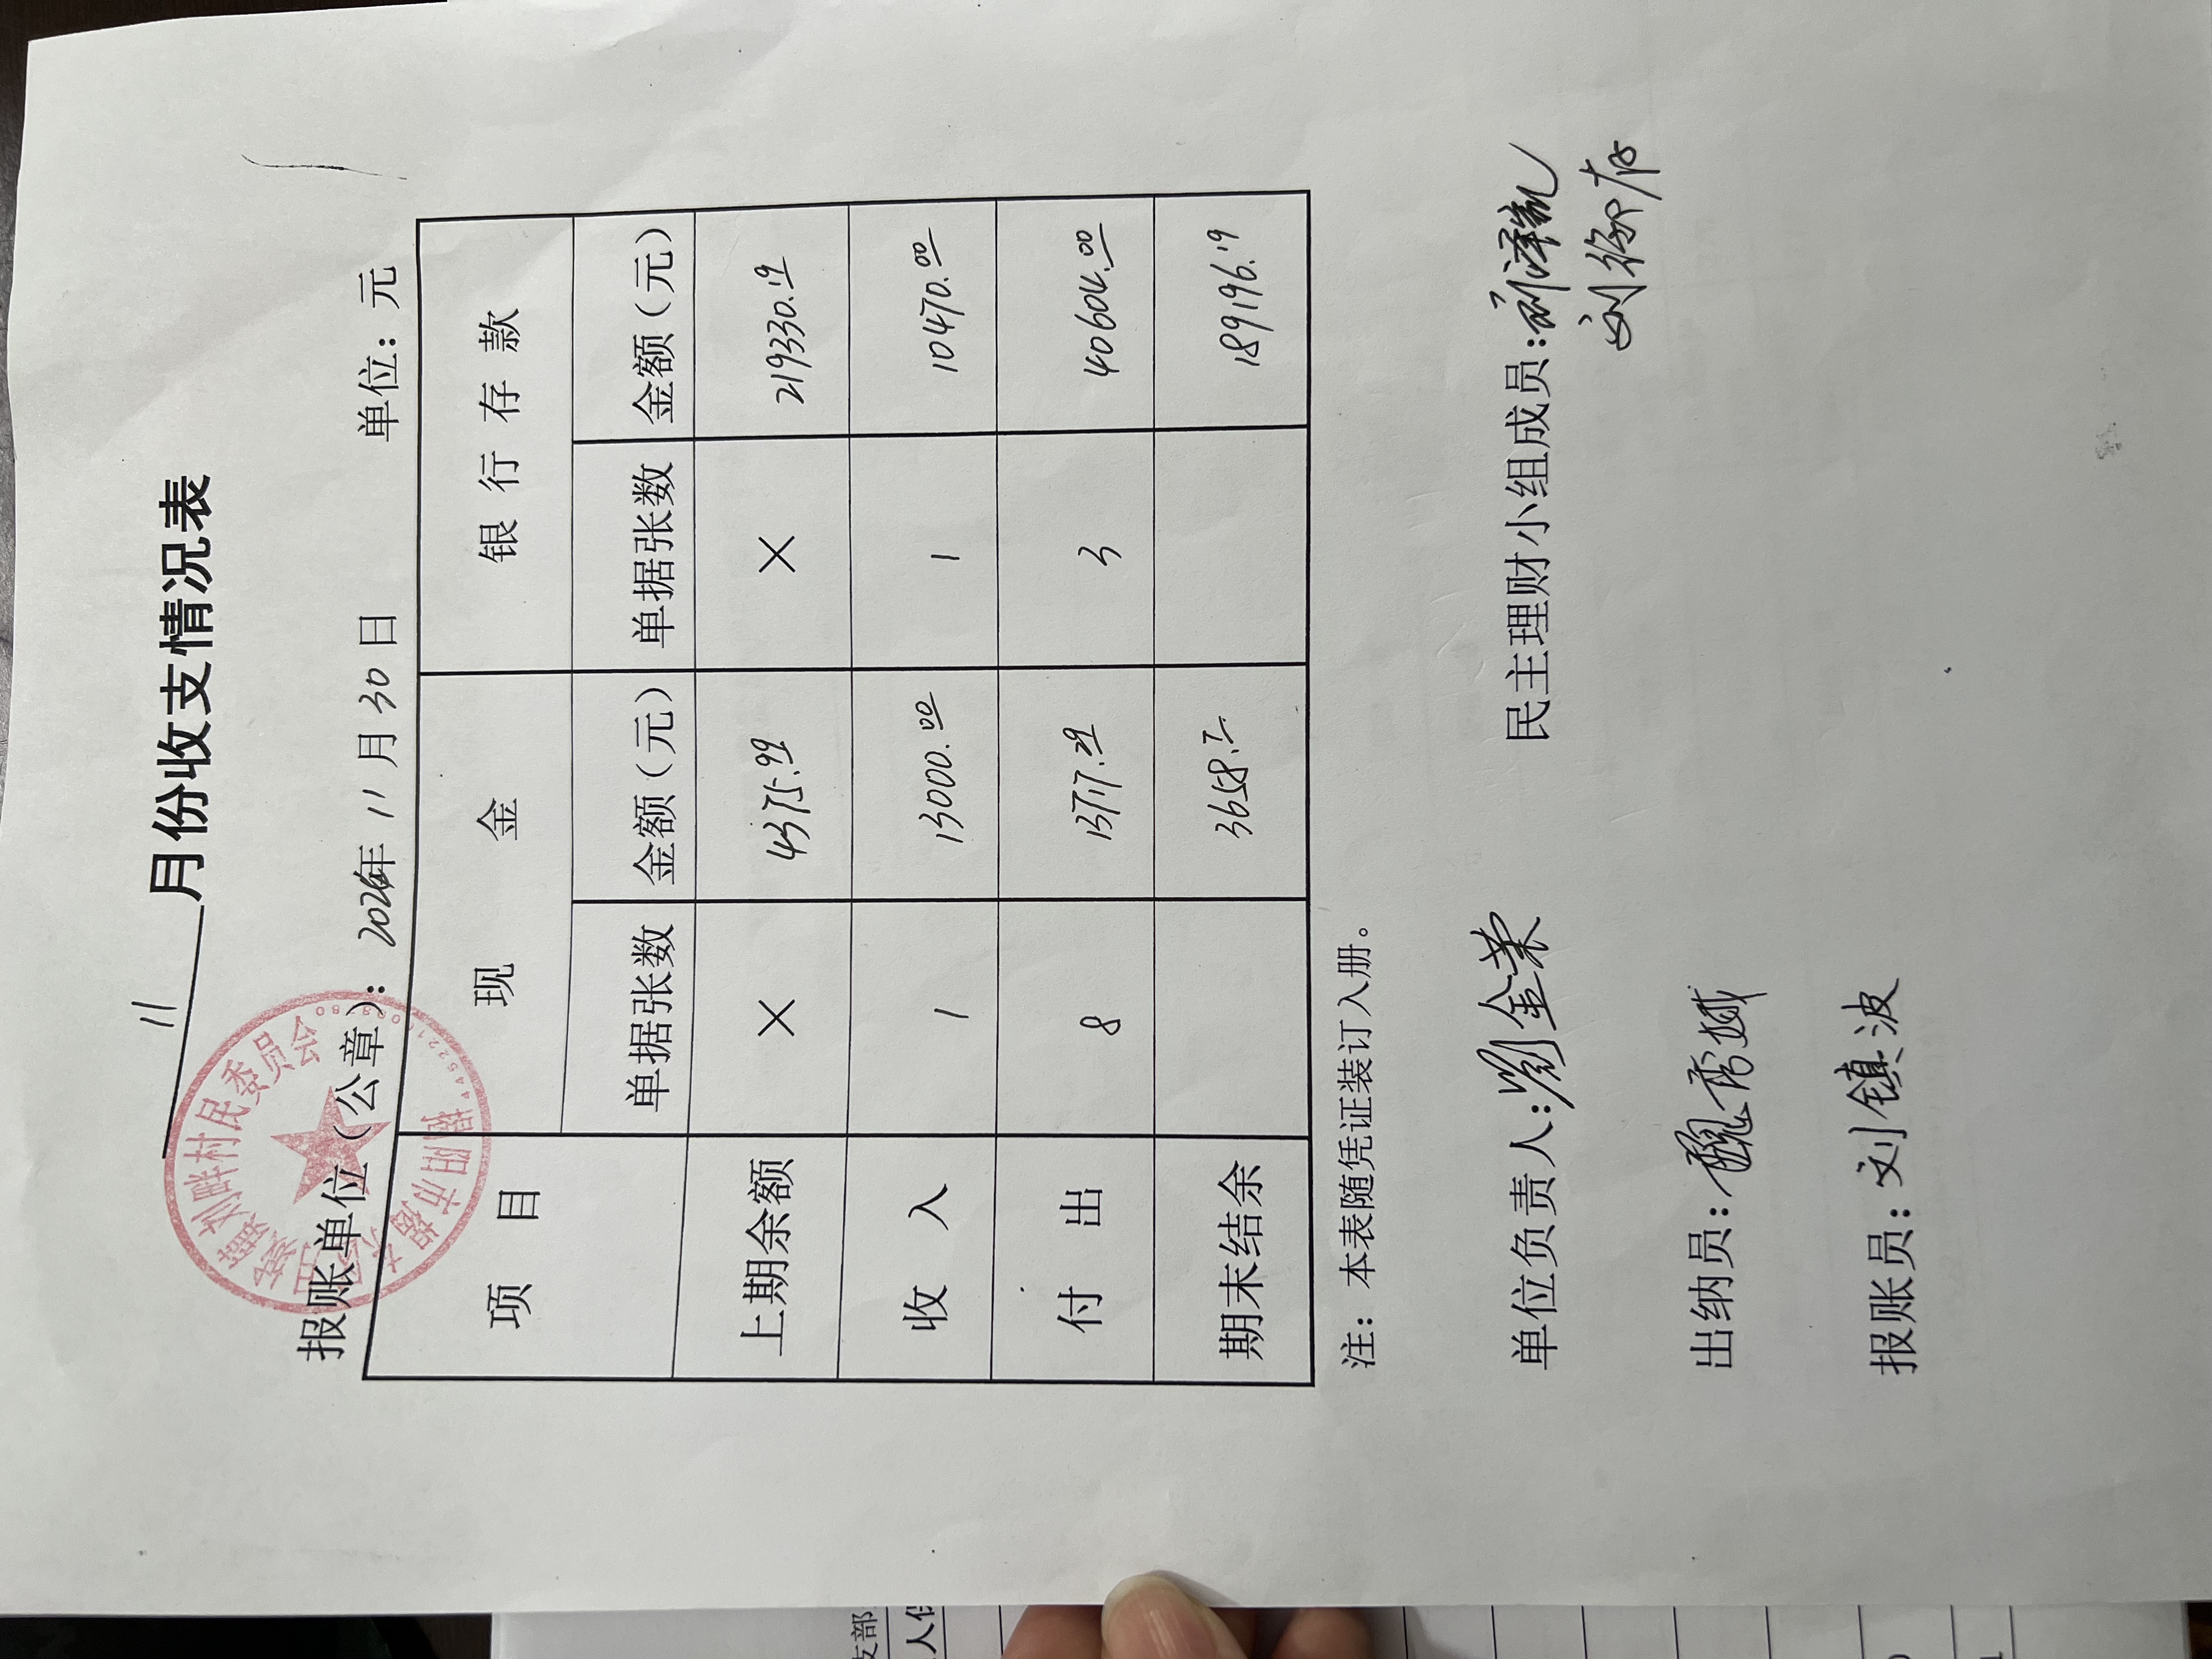 11月份收支情况表
报账单位（公章）：2024年11月30日 单位：元
刘畔村民委员会
项目 现金 银行存款
单据张数 金额（元） 单据张数 金额（元）
上期余额 × 4375.99 × 219330.19
收入 1 13000.00 1 10470.00
付出 8 13717.29 3 40604.00
期末结余 3658.7 189196.19
注：本表随凭证装订入册。
单位负责人：劉金荣 民主理财小组成员：刘泽凯
出纳员：魏秀娥
报账员：刘镇波